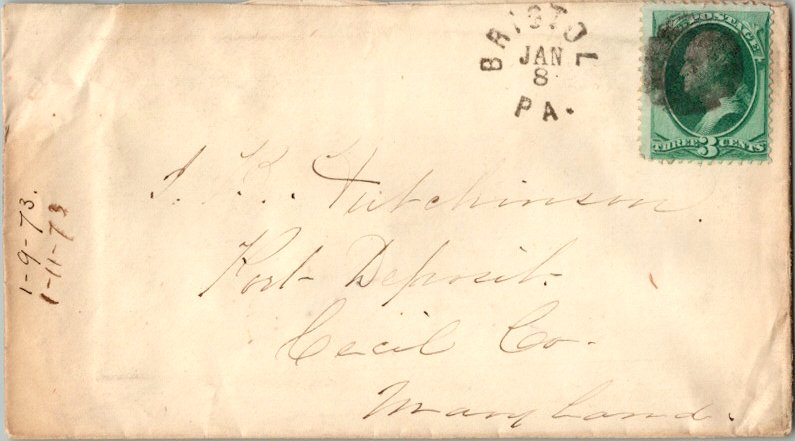 BRISTOL
JAN
8
PA.
U.S. POSTAGE
THREE 3 CENTS
Hutchinson.
Port Deposit.
Cecil Co.
Maryland.
1-9-73.
1-11-73